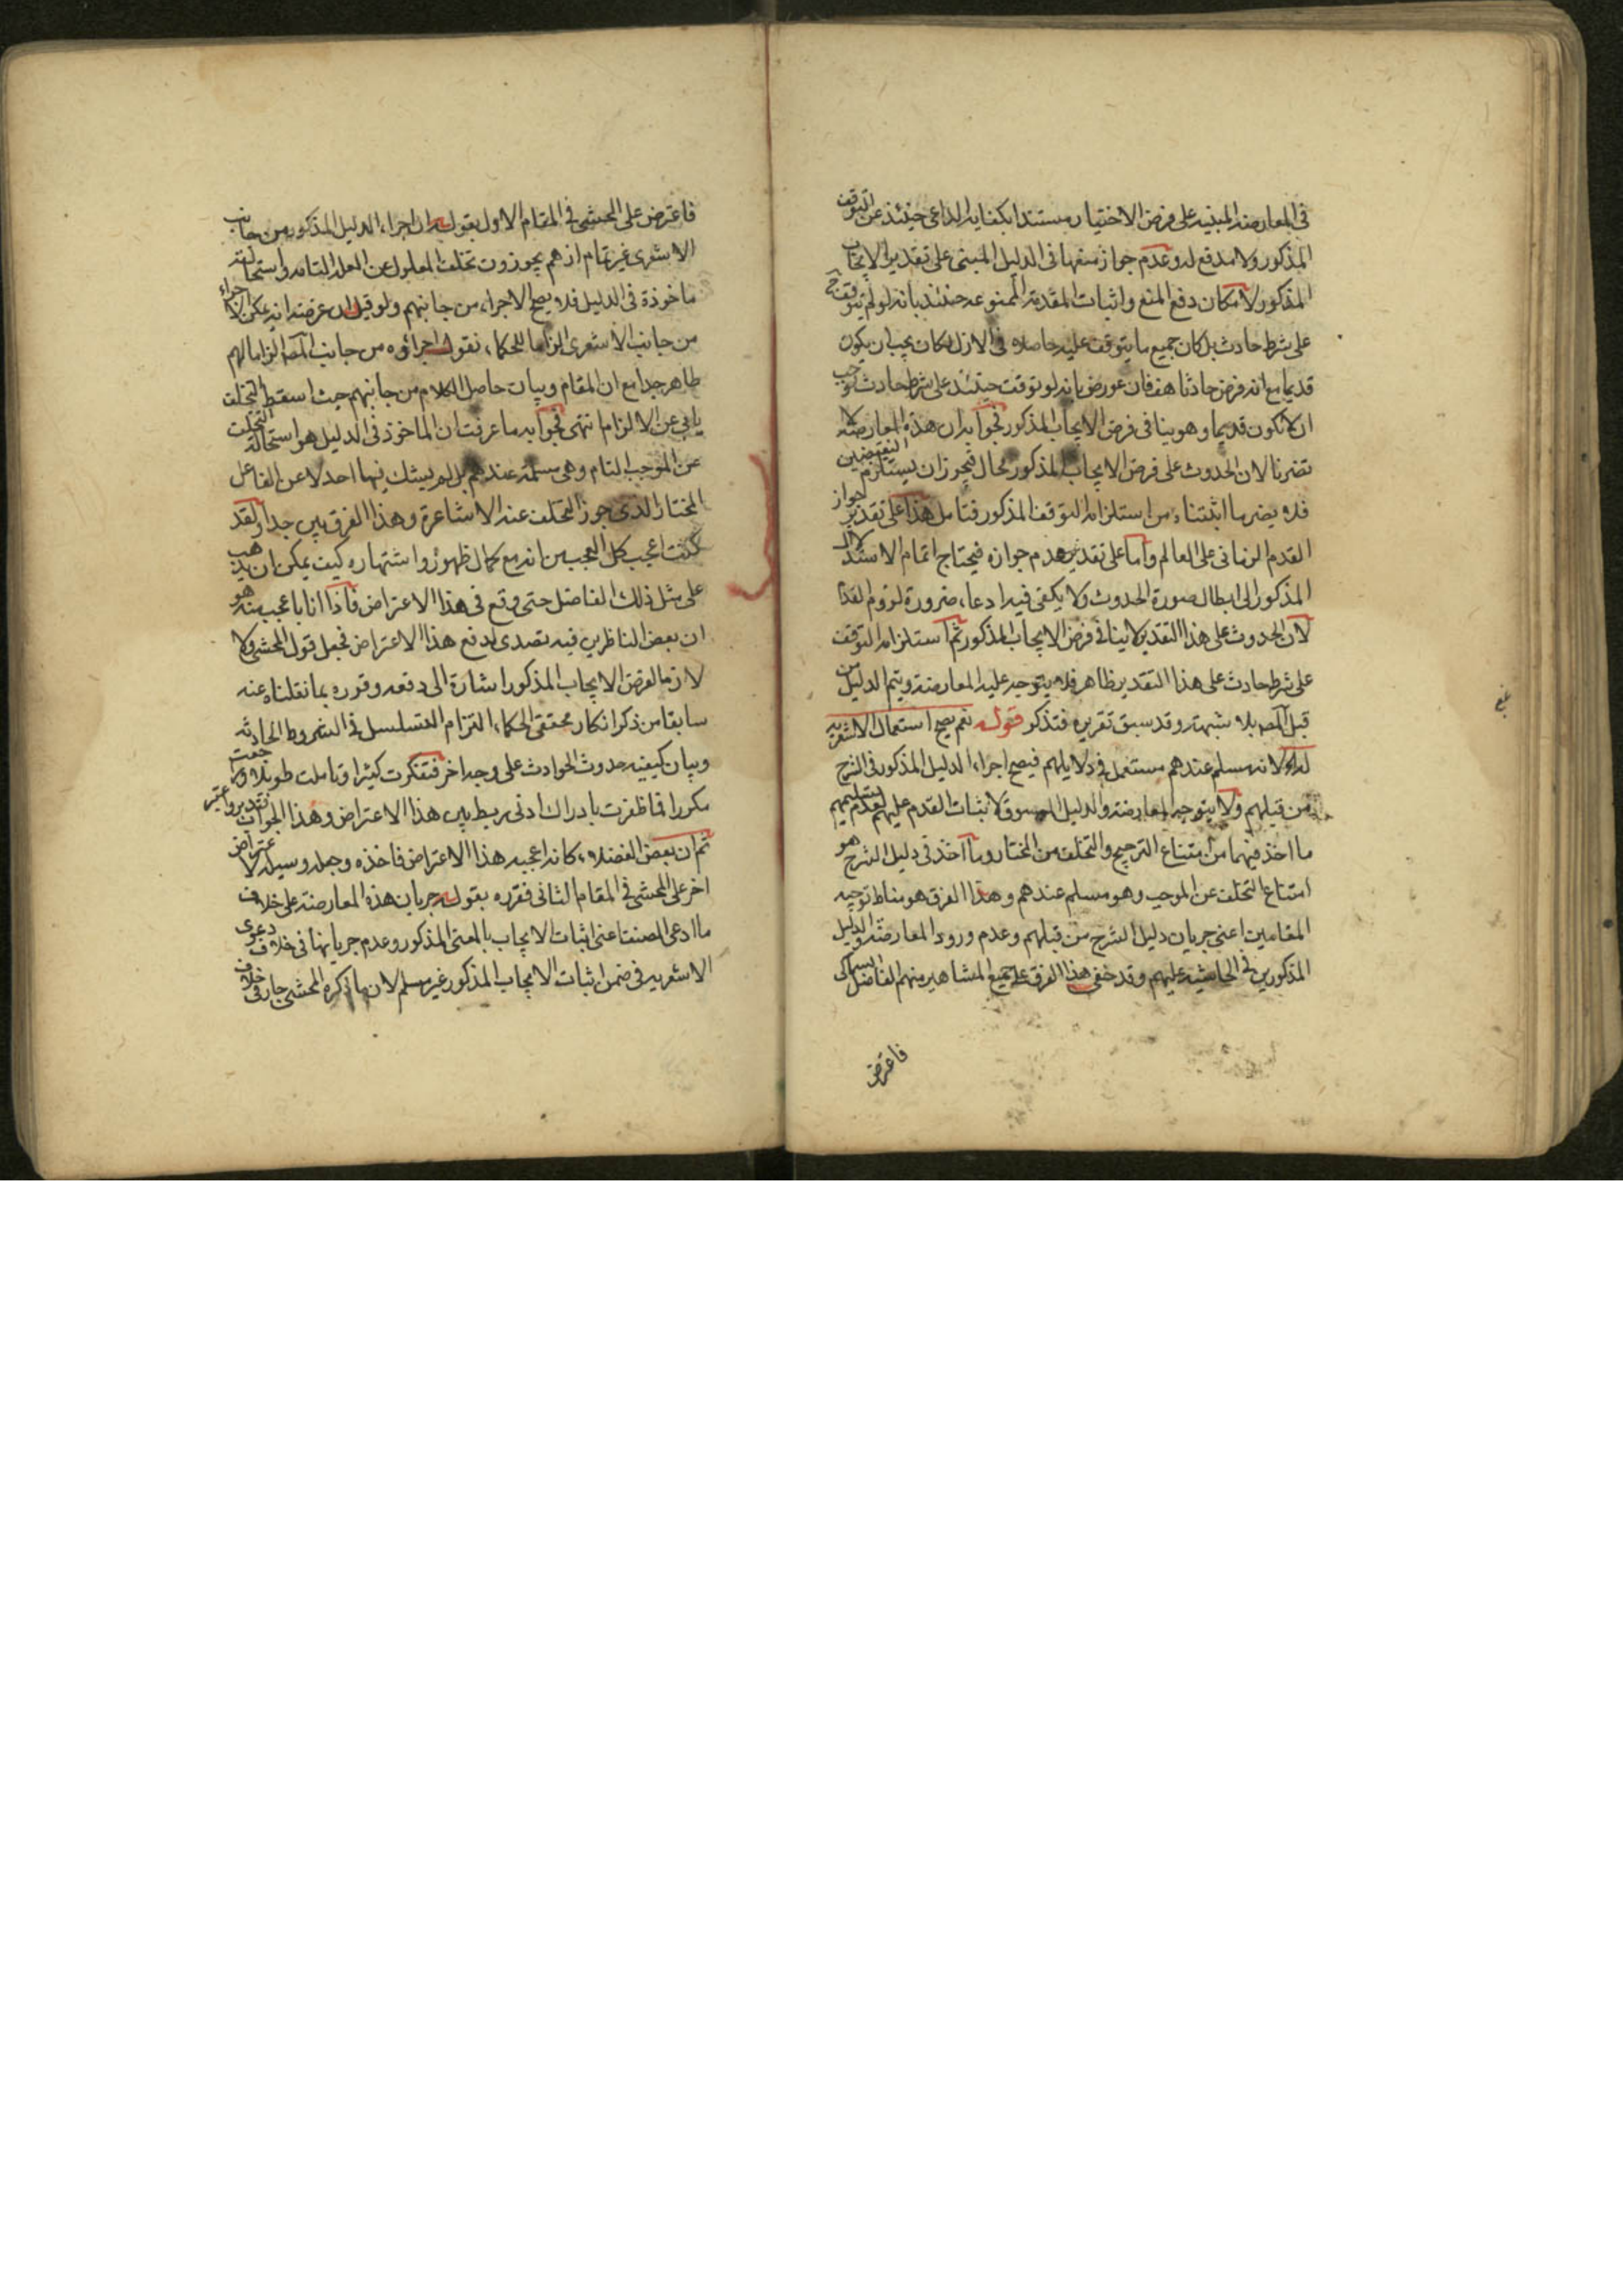 في المعارضة المبنية على فرض الاختيار مستندا بكفاية الداعي حينئذ عن التوقف
المذكور ولا مدفع له وعدم جواز منعها في الدليل المبني على تقدير الايجاب
المذكور لامكان دفع المنع واثبات المقدمة الممنوعة حينئذ بانه لو لم يتوقف ح
على شرط حادث بل كان جميع ما يتوقف عليه حاصلا في الازل لكان يجب ان يكون
قديما مع انه فرض حادثا هف فان عورض بانه لو توقف حينئذ على شرط حادث لوجب
ان لا تكون قديما وهو ينافي فرض الايجاب المذكور فجوابه ان هذه المعارضة لا
تضرنا لان الحدوث على فرض الايجاب المذكور محال فيجوز ان يستلزم النقيضين
فلا يضر ما اثبتناه من استلزامه التوقف المذكور فتأمل هذا على تقدير جواز
القدم الزماني على العالم واما على تقدير عدم جوازه فيحتاج اتمام الاستدلال
المذكور الى ابطال صورة الحدوث ولا يكفي فيه ادعاء ضرورة لزوم القدم
لان الحدوث على هذا التقدير لا ينافي فرض الايجاب المذكور ثم استلزامه التوقف
على شرط حادث على هذا التقدير ظاهر فلا يتوجه عليه المعارضة ويتم الدليل من
قبل المص بلا شبهة وقد سبق تقريره فتذكر قوله نعم يصح استعمال الاشعرية
له لانه مسلم عندهم مستعمل في دلايلهم فيصح اجراء الدليل المذكور في الشرح
من قبلهم ولا يتوجه المعارضة والدليل المسوق لاثبات القدم عليهم لعدم تسليمهم
ما اخذ فيهما من امتناع الترجيح والتخلف من المختار وما اخذ في دليل الشرح هو
امتناع التخلف عن الموجب وهو مسلم عندهم وهذا الفرق هو مناط توجيه
المقامين اعني جريان دليل الشرح من قبلهم وعدم ورود المعارضة والدليل
المذكورين في الحاشية عليهم وقد خفي هذا الفرق على جميع المشاهير منهم الفاضل
فاعترض
فاعترض على المحشي في المقام الاول بقوله ان اجراء الدليل المذكور من جانب
الاشعري غير تمام اذ هم يجوزون تخلف المعلول عن العلة التامة واستحالته
ماخوذة في الدليل فلا يصح الاجراء من جانبهم ولو قيل ان غرضه انه يمكن الاجراء
من جانب الاشعري الزاما للحكماء نقول اجراؤه من جانب المص الزاما لهم
ظاهر جدا مع ان المقام وبيان حاصل الكلام من جانبهم حيث اسقط التخلف
يابى عن الالزام انتهى فجوابه ما عرفت ان الماخوذ في الدليل هو استحالة التخلف
عن الموجب التام وهي مسلمة عندهم بل لم يشك فيها احد لا عن الفاعل
المختار الذي جوز التخلف عنه الاشاعرة وهذا الفرق بين جدا ولقد
كنت اعجب كل العجب من انه مع كمال ظهوره واشتهاره كيف يمكن ان يذهب
على مثل ذلك الفاضل حتى وقع في هذا الاعتراض فاذا انا باعجب منه هو
ان بعض الناظرين فيه تصدى لدفع هذا الاعتراض فجعل قول المحشي ولا
لازما لفرض الايجاب المذكور اشارة الى دفعه وقرره بما نقلناه عنه
سابقا من ذكر انكار محققي الحكماء التزام التسلسل في الشروط الحادثة
وبيان كيفية حدوث الحوادث على وجه اخر فتفكرت كثيرا وتاملت طويلا ورجعت
مكررا فما ظفرت بادراك ادنى ربط بين هذا الاعتراض وهذا الجواب فتدبر واعتبر
ثم ان بعض الفضلاء كانه اعجبه هذا الاعتراض فاخذه وجعله وسيلة لاعتراض
اخر على المحشي في المقام الثاني فقرره بقوله جريان هذه المعارضة على خلاف
ما ادعى المصنف اعني اثبات الايجاب بالمعنى المذكور وعدم جريانها في خلاف دعوى
الاشعرية في ضمن اثبات الايجاب المذكور غير مسلم لان ما ذكره المحشي جار في خلاف